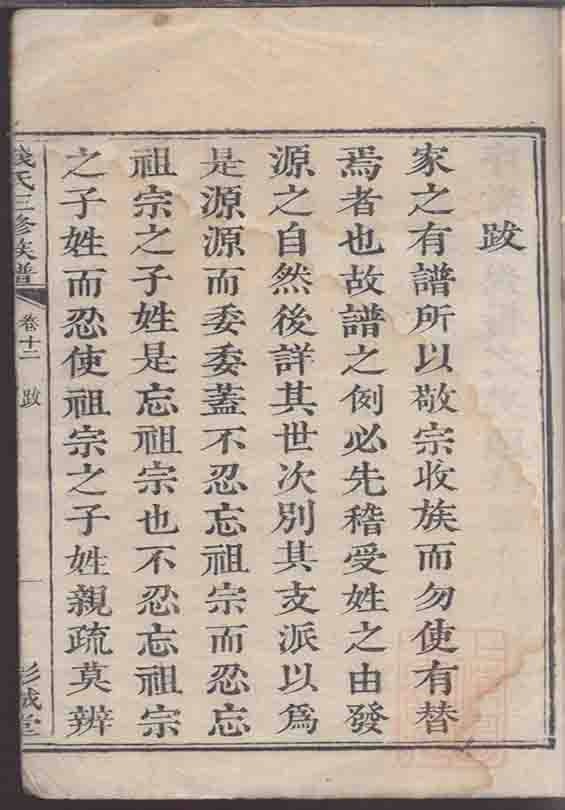 跋
家之有譜所以敬宗收族而勿使有替
焉者也故譜之例必先稽受姓之由發
源之自然後詳其世次別其支派以爲
是源源而委委蓋不忍忘祖宗而忍忘
祖宗之子姓是忘祖宗也不忍忘祖宗
之子姓而忍使祖宗之子姓親疏莫辨
錢氏三修族譜
卷十二
跋
一
彭城堂